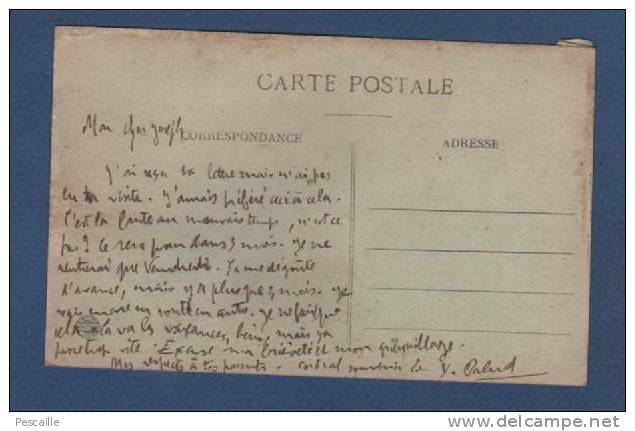 CARTE POSTALE
Mon cher Joseph
CORRESPONDANCE
ADRESSE
J'ai reçu ta lettre mais n'ai pas
eu ta visite. J'aurais préféré ceci à cela.
C'est la faute au mauvais temps, n'est ce
pas? Ce sera pour dans 3 mois. Je ne
rentrerai que Vendredi. Ça me dégoûte
d'avance, mais y a plus que 3 mois. Je
vais encore en auto. Je ne fais que
cela va les vacances, hein, mais ça
passe trop vite. Excuse ma brièveté et mon gribouillage.
Mes respects à tes parents. Cordial souvenir
Pescaille
http://pescaille.delcampe.net